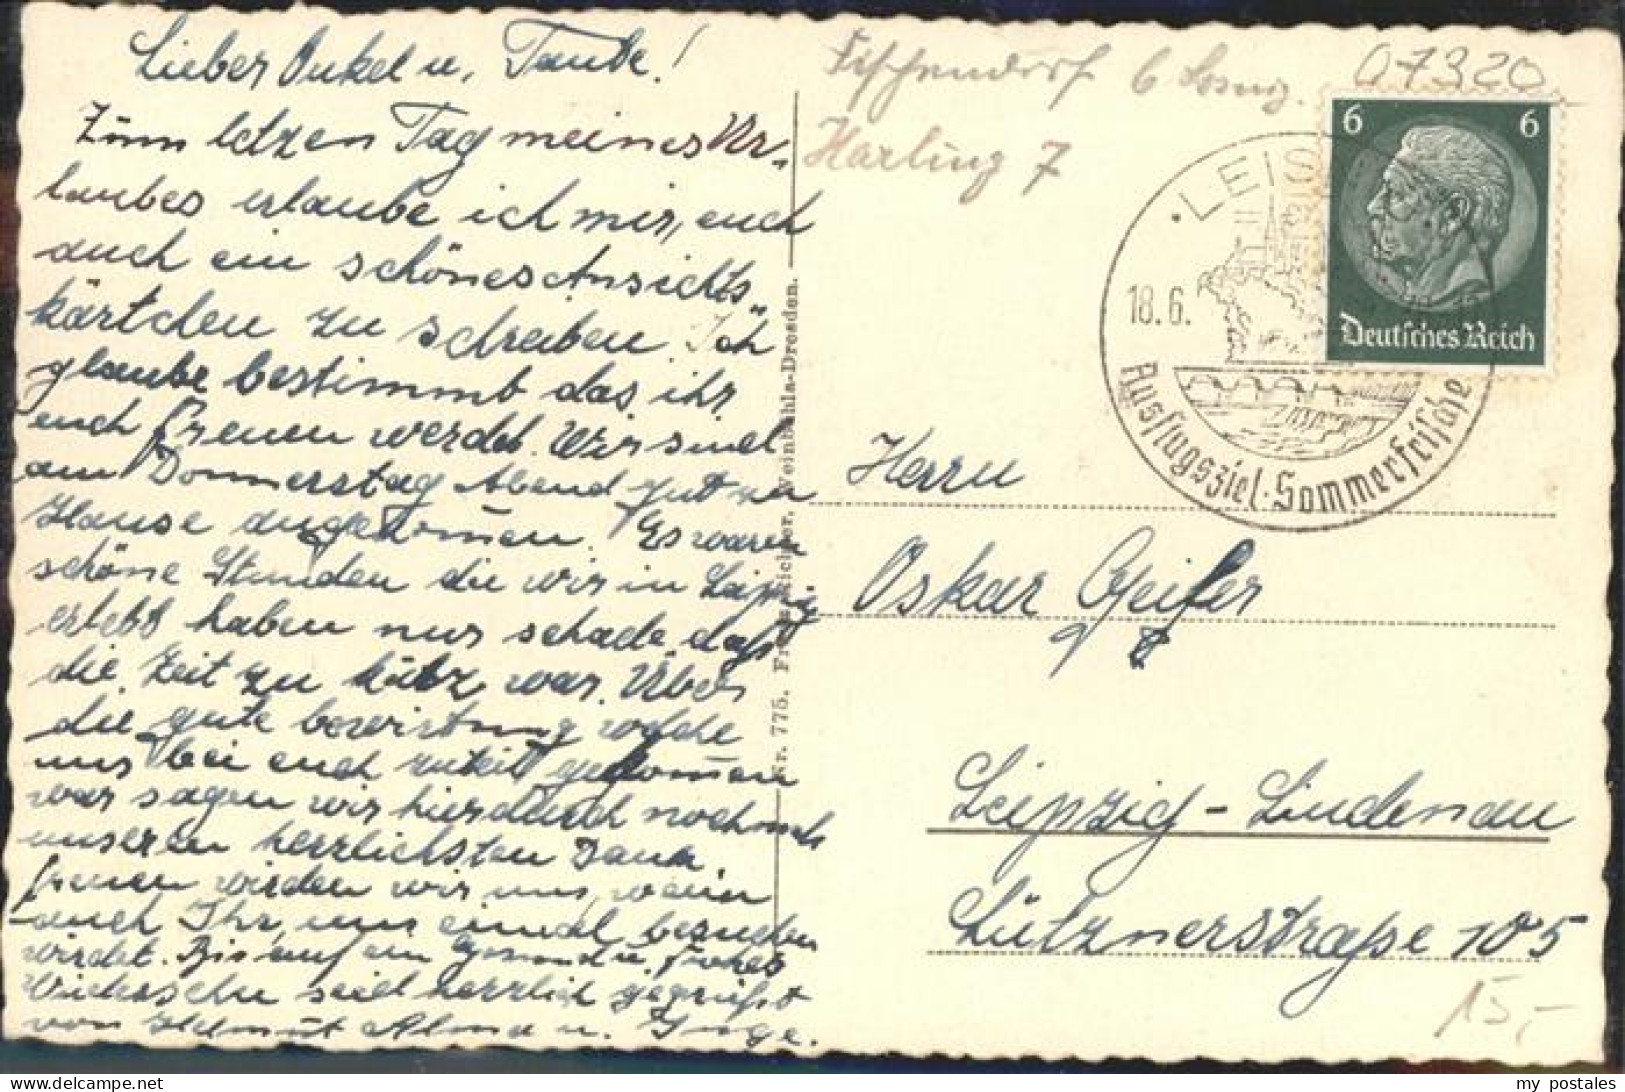 Lieber Onkel u. Tante!
Zum letzen Tag meines Ur-
laubes erlaube ich mir, euch
auch ein schönes Ansichts-
kärtchen zu schreiben. Ich
glaube bestimmt das ihr
euch freuen werdet. Wir sind
am Donnerstag Abend gut zu
Hause angekommen. Es waren
schöne Stunden die wir in Leipzig
erlebt haben nur schade, daß
die Zeit zu kurz war. Über
die gute bewirtung welche
uns bei euch zuteil gekommen
war sagen wir hierdurch nochmals
unseren herrlichsten Dank.
freuen würden wir uns, wenn
auch Ihr, uns einmal besuchen
würdet. Bis auf ein Gesund u. frohes
Wiedersehn seid herzlich gegrüßt
von Helmut Alma u. Inge.
Nr. 775. Weinböhla-Dresden.
Fischendorf b Leisnig.
Harling 7
07320
6 6
Deutsches Reich
LEIS
18.6.
Ausflugsziel · Sommerfrische
Herrn
Oskar Geifer
Leipzig-Lindenau
Lütznerstraße 105
15,-
my postales